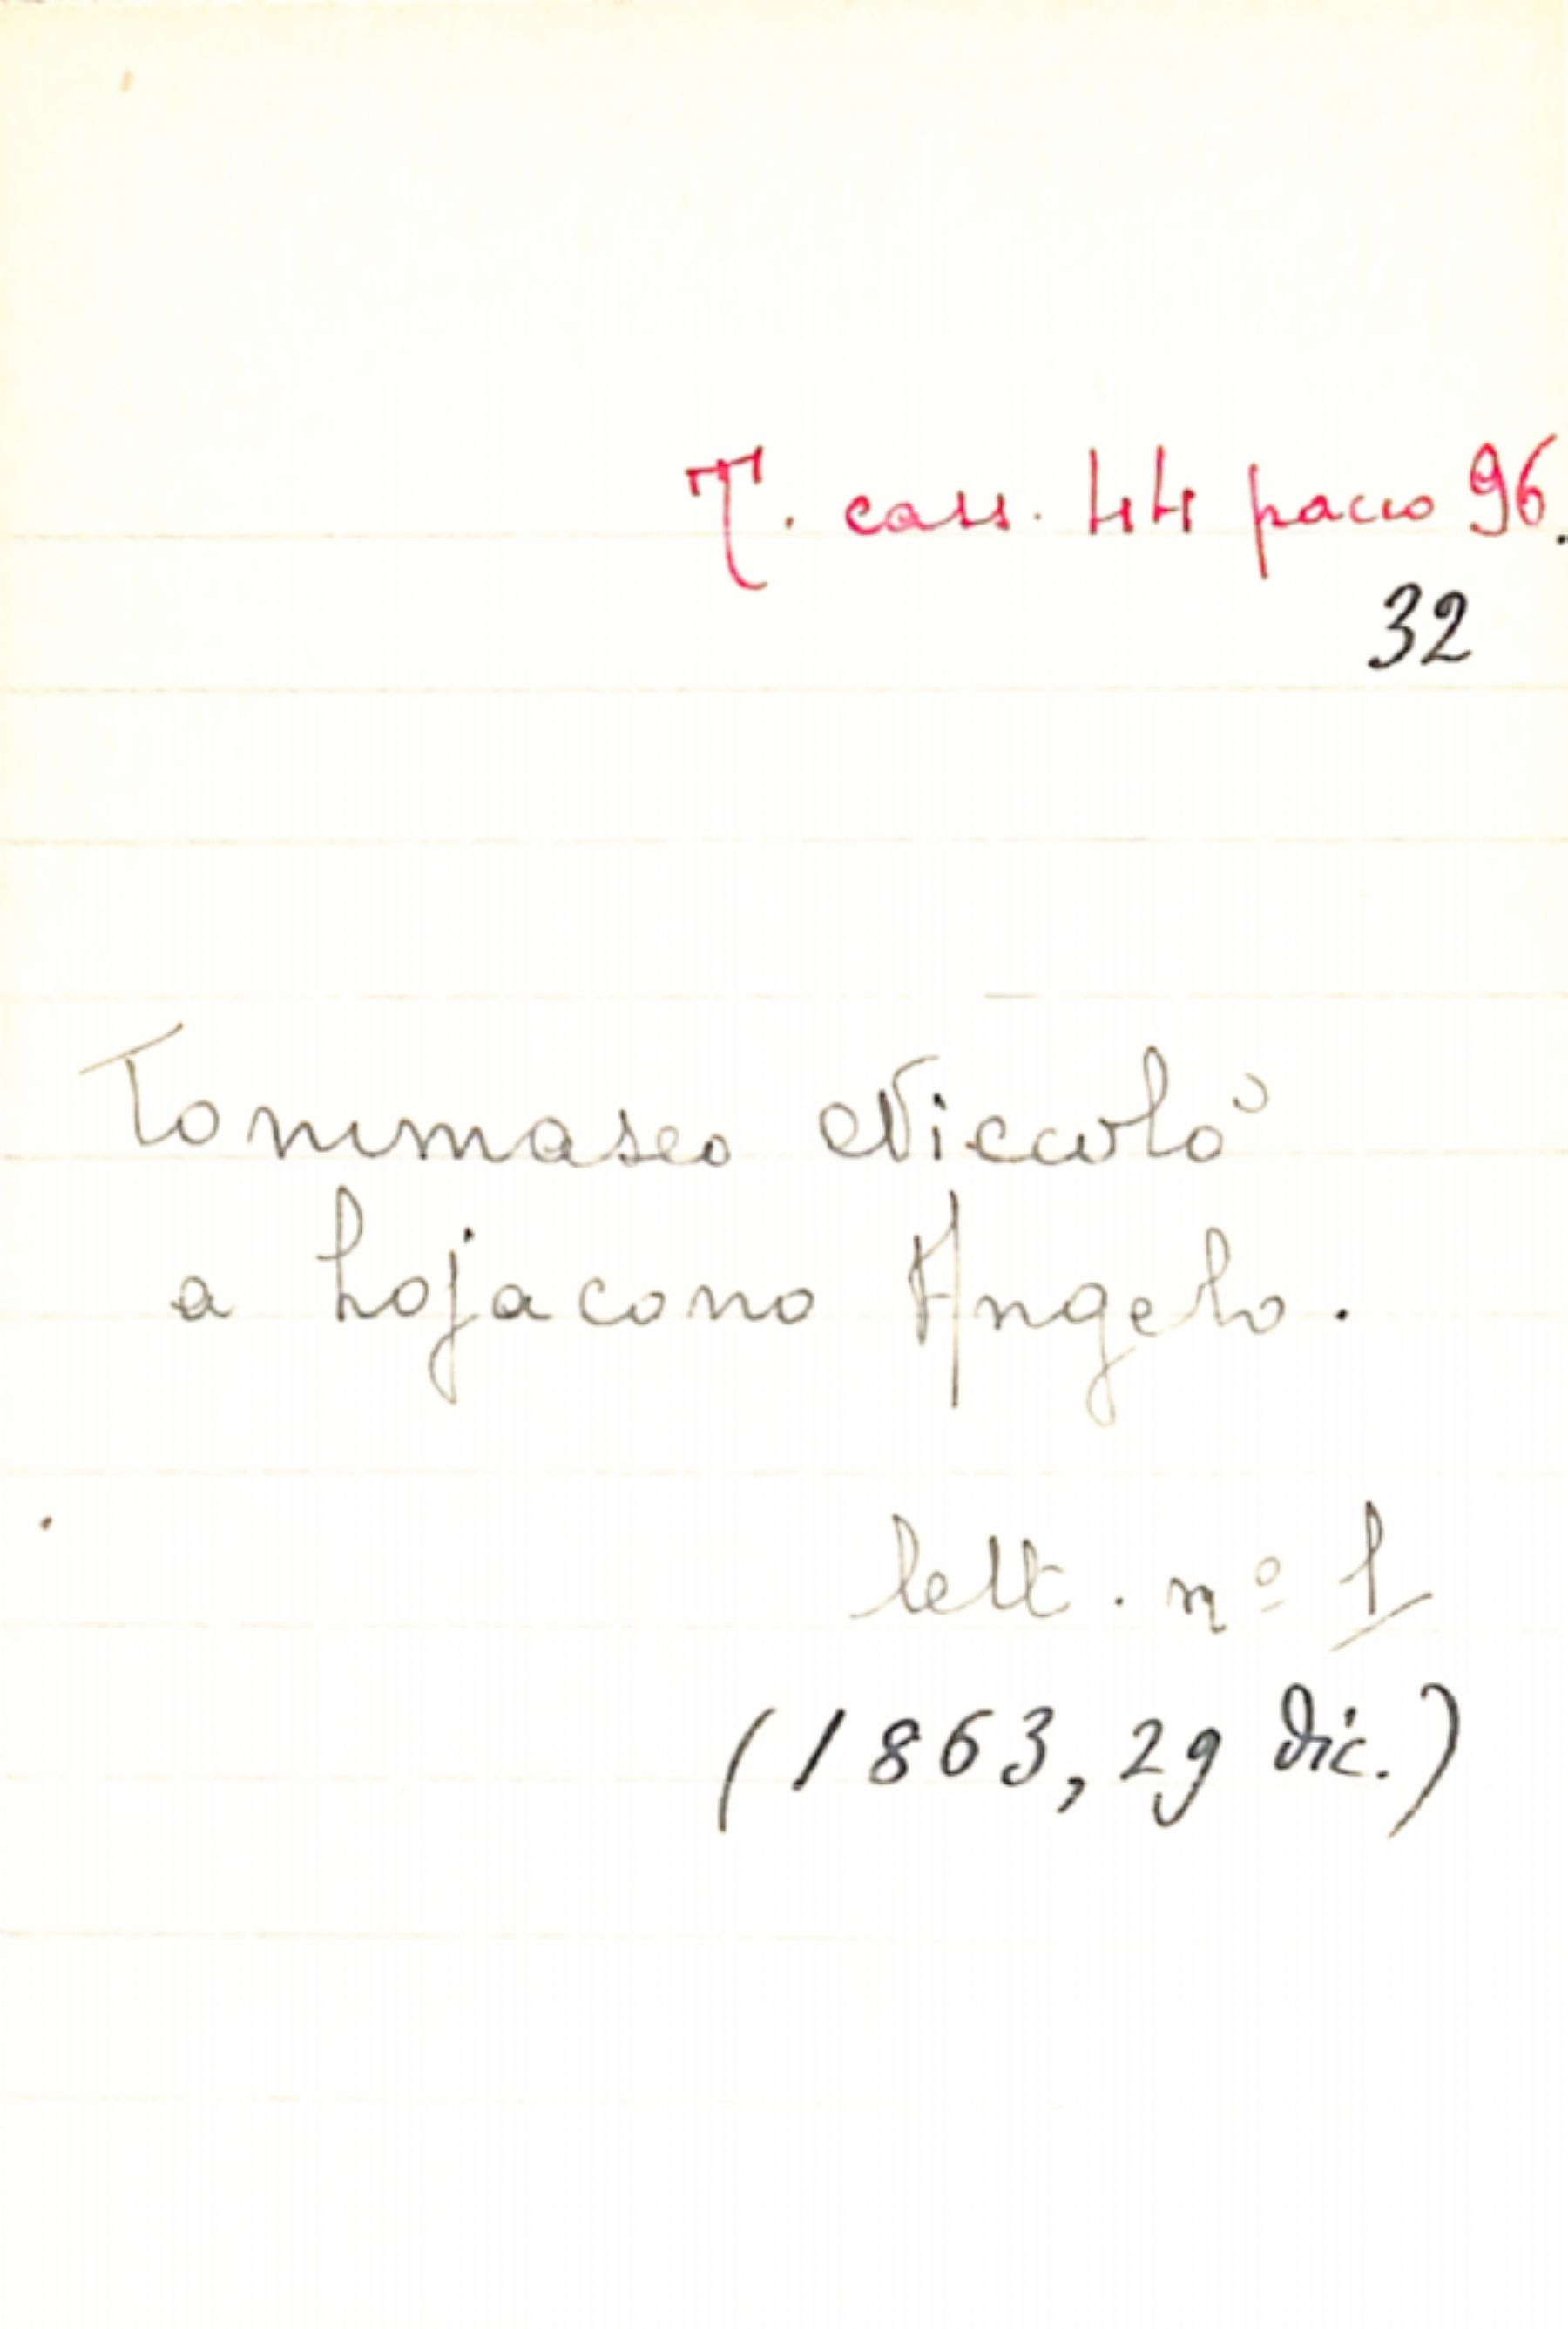 T. cass. 44 pacco 96.
32
Tommaseo Niccolò
a Lojacono Angelo.
lett. nº 1
(1863, 29 dic.)